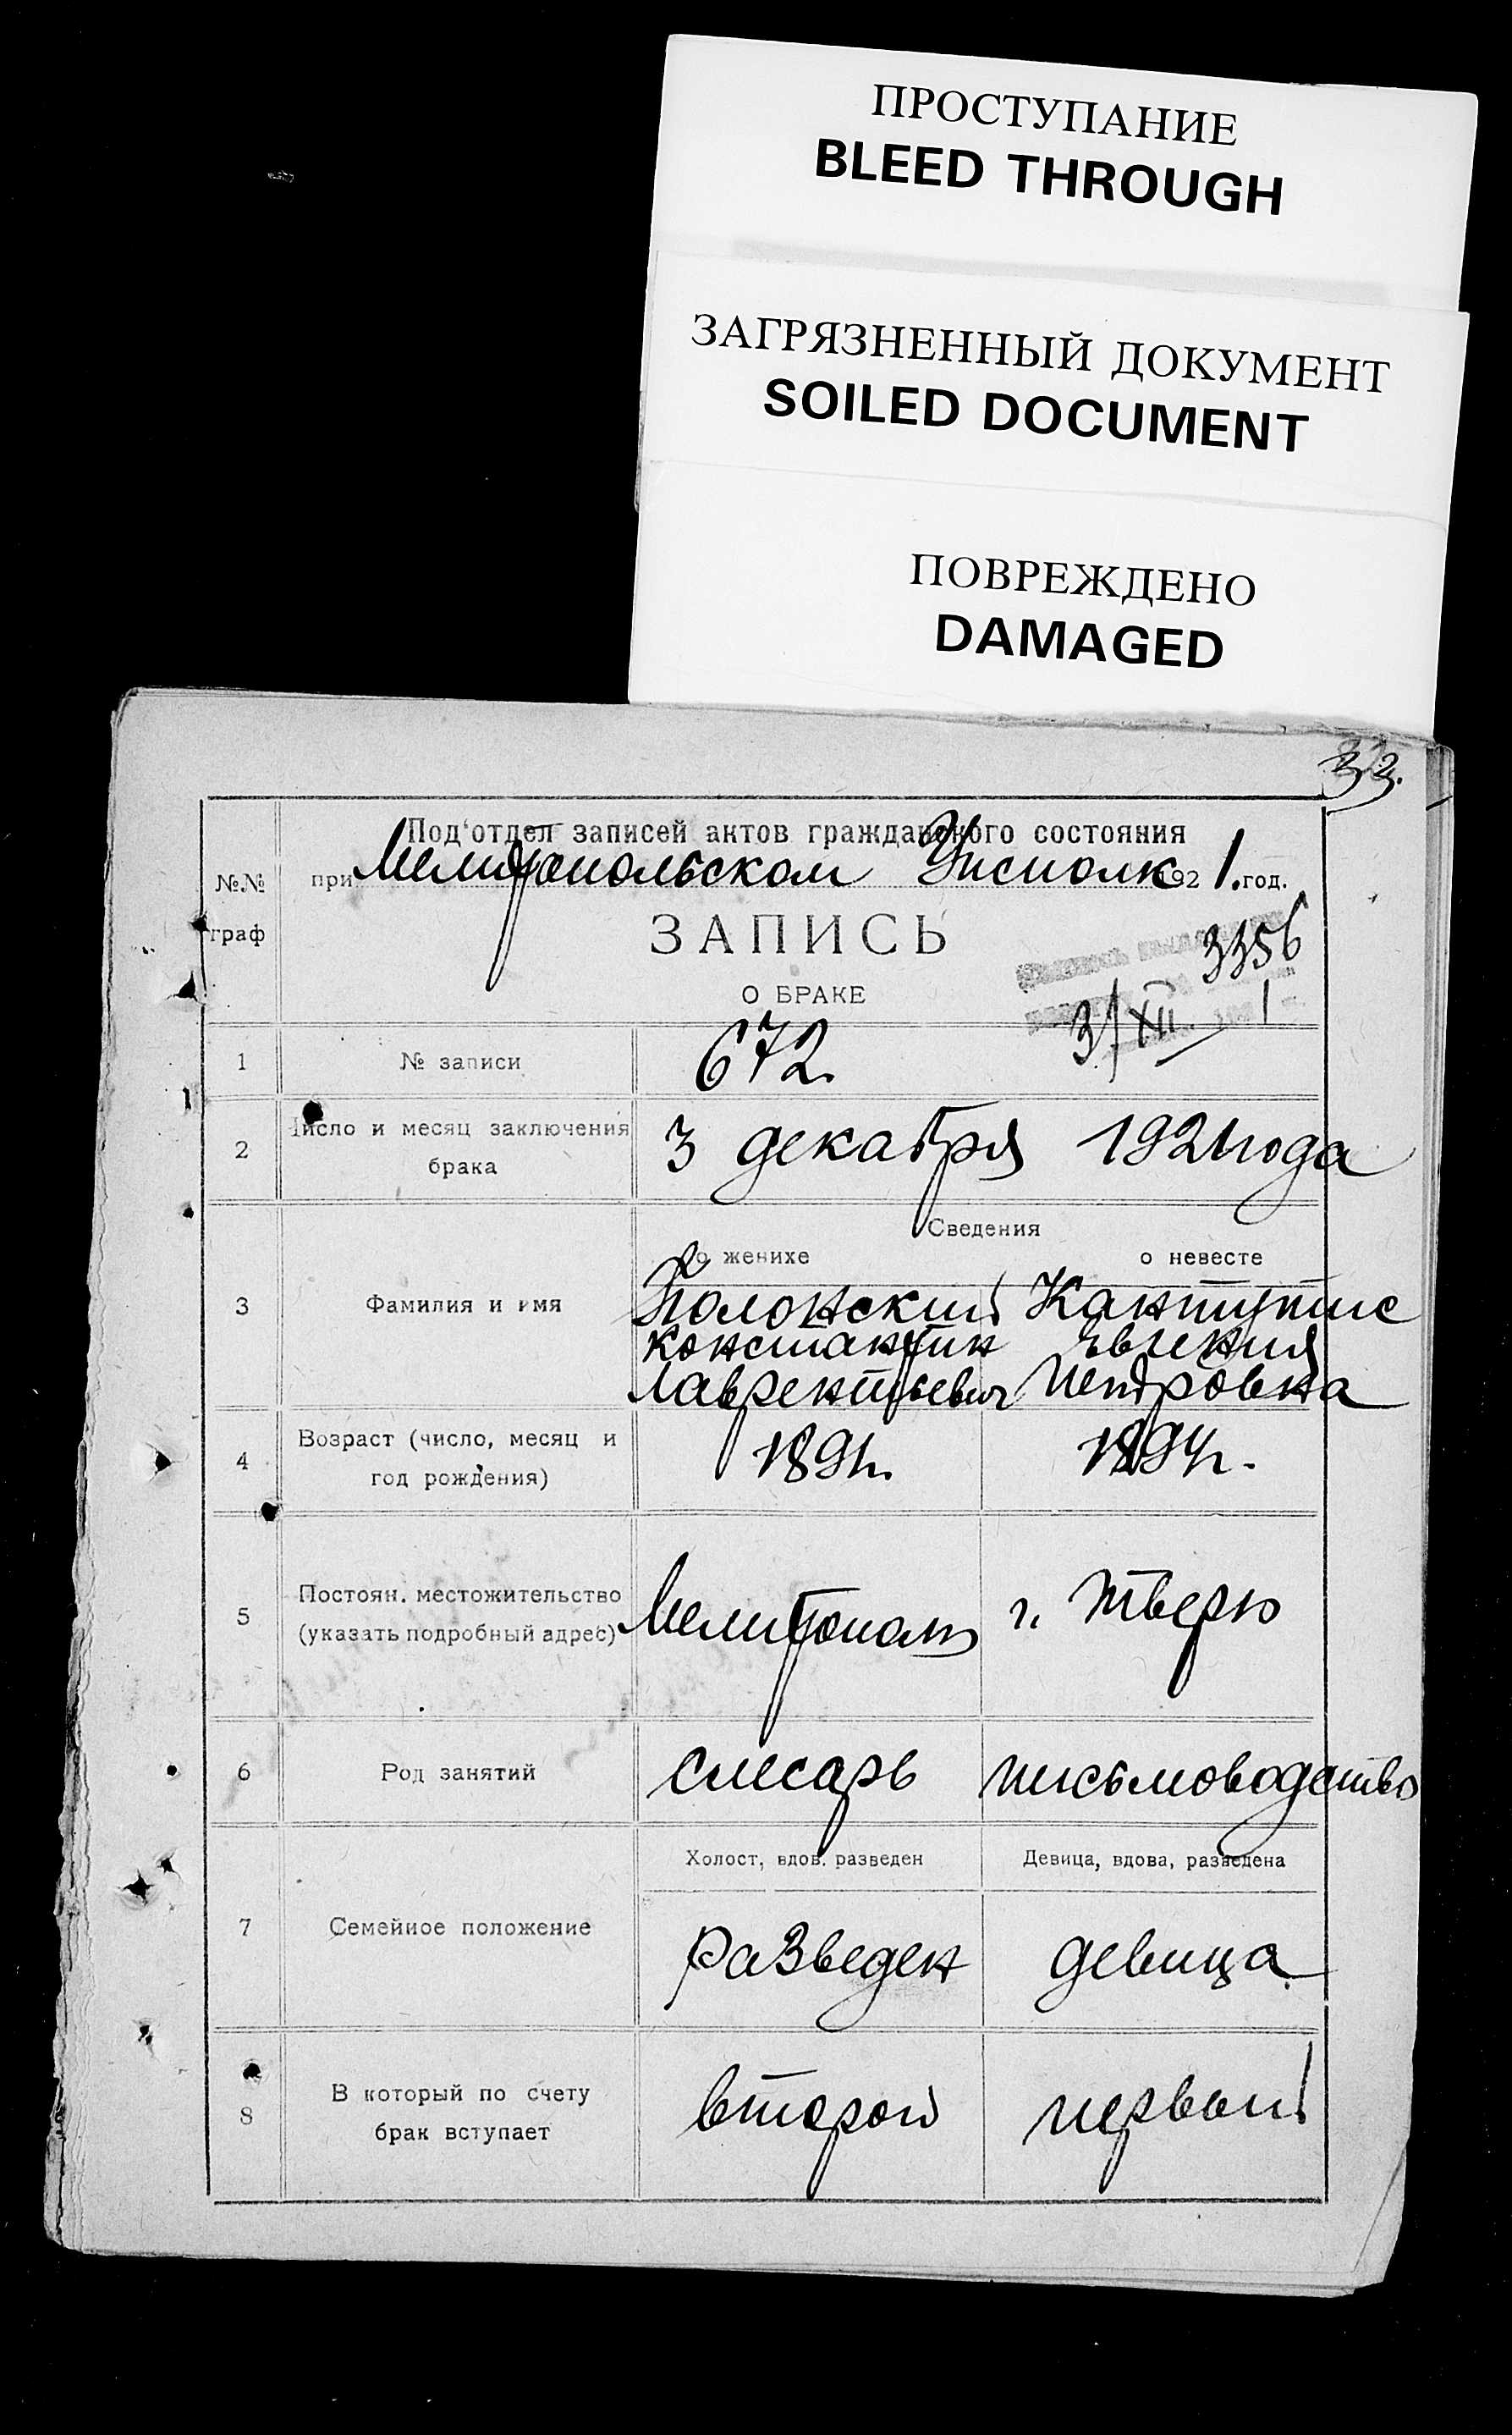 ПРОСТУПАНИЕ
BLEED THROUGH
ЗАГРЯЗНЕННЫЙ ДОКУМЕНТ
SOILED DOCUMENT
ПОВРЕЖДЕНО
DAMAGED
33.
Под'отдел записей актов гражданского состояния
при Мелитопольском Уисполк 1921. год.
№№ граф
ЗАПИСЬ
О БРАКЕ
3356
3/XII 1
1 № записи 672.
2 Число и месяц заключения брака 3 декабря 1921 года
Сведения
о женихе о невесте
3 Фамилия и имя
Полонский
Константин Евгения
Лаврентьевич Петровна
4 Возраст (число, месяц и год рождения) 1891г. 1894г.
5 Постоян. местожительство (указать подробный адрес) Мелитополь г. Тверь
6 Род занятий слесарь письмоводство
Холост, вдов. разведен Девица, вдова, разведена
7 Семейное положение разведен девица
8 В который по счету брак вступает второй первый